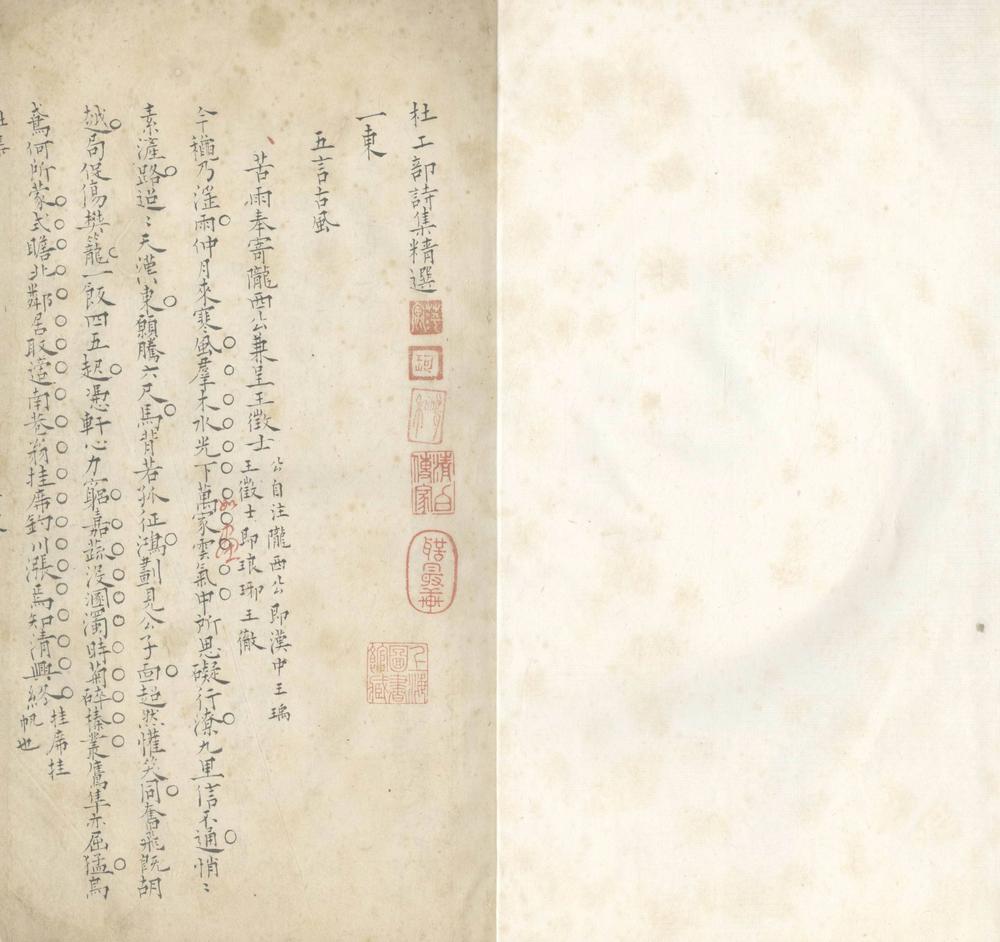 杜工部詩集精選
一東
五言古風
苦雨奉寄隴西公兼呈王徵士 公自注隴西公即漢中王瑀
王徵士即琅琊王徹
今秋乃淫雨仲月來寒風羣木水光下萬家雲氣中所思礙行潦九里信不通悄〻
素滻路迢〻天漢東願騰六尺馬背若孤征鴻劃見公子面超然懽笑同奮飛既胡
越局促傷樊籠一飯四五起憑軒心力窮嘉蔬沒溷濁時菊碎榛叢鷹隼亦屈猛烏
鳶何所蒙式瞻北鄰居取適南巷翁挂席釣川漲焉知清興終 挂席挂
帆也
清白傳家
上海圖書館藏